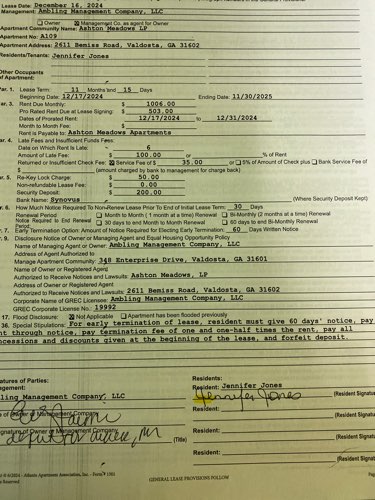 Lease Date: December 16, 2024
Management: Ambling Management Company, LLC
Owner Management Co. as agent for Owner
Apartment Community Name: Ashton Meadows LP
Apartment No: A109
Apartment Address: 2611 Bemiss Road, Valdosta, GA 31602
Residents/Tenants: Jennifer Jones
Other Occupants
of Apartment:
Par. 1. Lease Term: 11 Months and 15 Days
Beginning Date: 12/17/2024 Ending Date: 11/30/2025
Par. 3. Rent Due Monthly: $ 1006.00
Pro Rated Rent Due at Lease Signing: $ 503.00
Dates of Prorated Rent: 12/17/2024 to 12/31/2024
Month to Month Fee: $
Rent is Payable to: Ashton Meadows Apartments
Par. 4. Late Fees and Insufficient Funds Fees.
Date on Which Rent Is Late: 6
Amount of Late Fee: $ 100.00 or % of Rent
Returned or Insufficient Check Fee: Service Fee of $ 35.00 or 5% of Amount of Check plus Bank Service Fee of
$ (amount charged by bank to management for charge back)
Par. 5. Re-Key Lock Charge: $ 50.00
Non-refundable Lease Fee: $ 0.00
Security Deposit: $ 200.00
Bank Name: Synovus (Where Security Deposit Kept)
Par. 6. How Much Notice Required To Non-Renew Lease Prior To End of Initial Lease Term: 30 Days
Renewal Period Month to Month (1 month at a time) Renewal Bi-Monthly (2 months at a time) Renewal
Notice Required to End Renewal Period 30 days to end Month to Month Renewal 60 days to end Bi-Monthly Renewal
7. Early Termination Option: Amount of Notice Required for Electing Early Termination: 60 Days Written Notice
9. Disclosure Notice of Owner or Managing Agent and Equal Housing Opportunity Policy
Name of Managing Agent or Owner: Ambling Management Company, LLC
Address of Agent Authorized to
Manage Apartment Community: 348 Enterprise Drive, Valdosta, GA 31601
Name of Owner or Registered Agent
Authorized to Receive Notices and Lawsuits: Ashton Meadows, LP
Address of Owner or Registered Agent
Authorized to Receive Notices and Lawsuits: 2611 Bemiss Road, Valdosta, GA 31602
Corporate Name of GREC Licensee: Ambling Management Company, LLC
Corporate GREC License No.: 19992
17. Flood Disclosure: Not Applicable Apartment has been flooded previously
36. Special Stipulations: For early termination of lease, resident must give 60 days' notice, pay
nt through notice, pay termination fee of one and one-half times the rent, pay all
oncessions and discounts given at the beginning of the lease, and forfeit deposit.
atures of Parties: Residents:
nagement: Resident: Jennifer Jones
ling Management Company, LLC Jennifer Jones (Resident Signatu
e of Owner or Management Company Resident:
(Resident Signatu
ignature of Owner or Management Company Resident:
(Title) (Resident Signatu
Resident:
(Resident Signatu
© 6/2024 - Atlanta Apartment Association, Inc. - Form 1001
GENERAL LEASE PROVISIONS FOLLOW